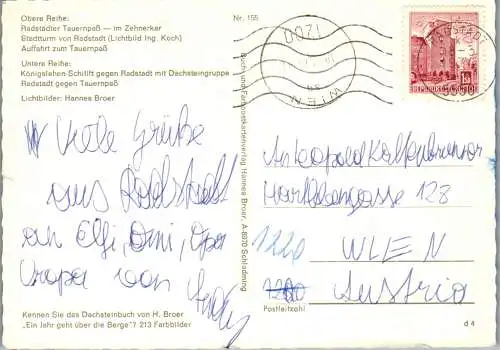 Obere Reihe:
Radstädter Tauernpaß — im Zehnerkar
Stadtturm von Radstadt (Lichtbild Ing. Koch)
Auffahrt zum Tauernpaß
Untere Reihe:
Königslehen-Schilift gegen Radstadt mit Dachsteingruppe
Radstadt gegen Tauernpaß
Lichtbilder: Hannes Broer
Nr. 155
Viele Grüße
aus Radstadt
an Elfi, Omi, Opa
Uropa von
Kennen Sie das Dachsteinbuch von H. Broer
„Ein Jahr geht über die Berge"? 213 Farbbilder
Buch- und Farbpostkartenverlag Hannes Broer, A 8970 Schladming
WIEN
REPUBLIK ÖSTERREICH
An Leopold Kaltenbrunner
128
1220 WIEN
Austria
Postleitzahl
d 4